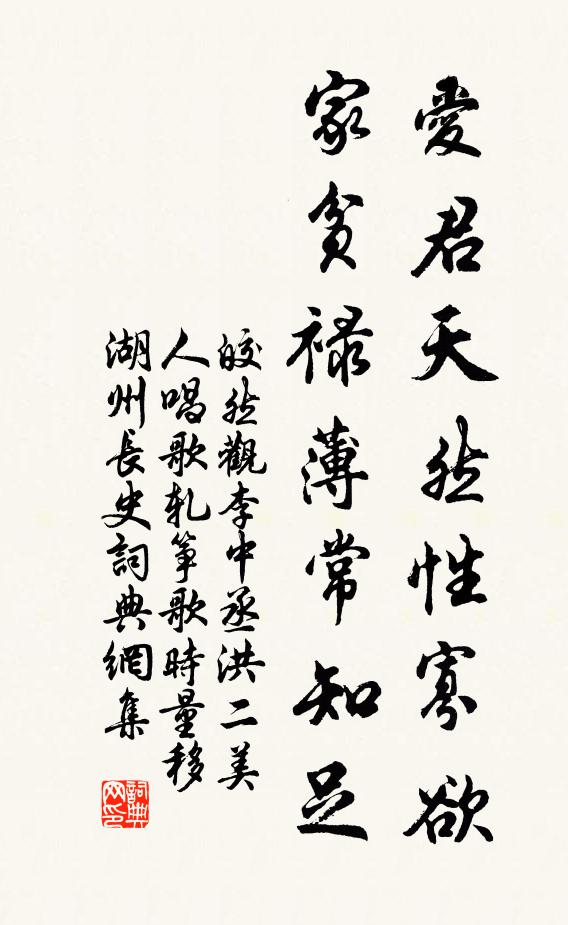 愛君天然性寡欲
家貧祿薄常知足
皎然觀李中丞洪二美
人唱歌軋箏歌時量移
湖州長史詞典網集
詞典网印